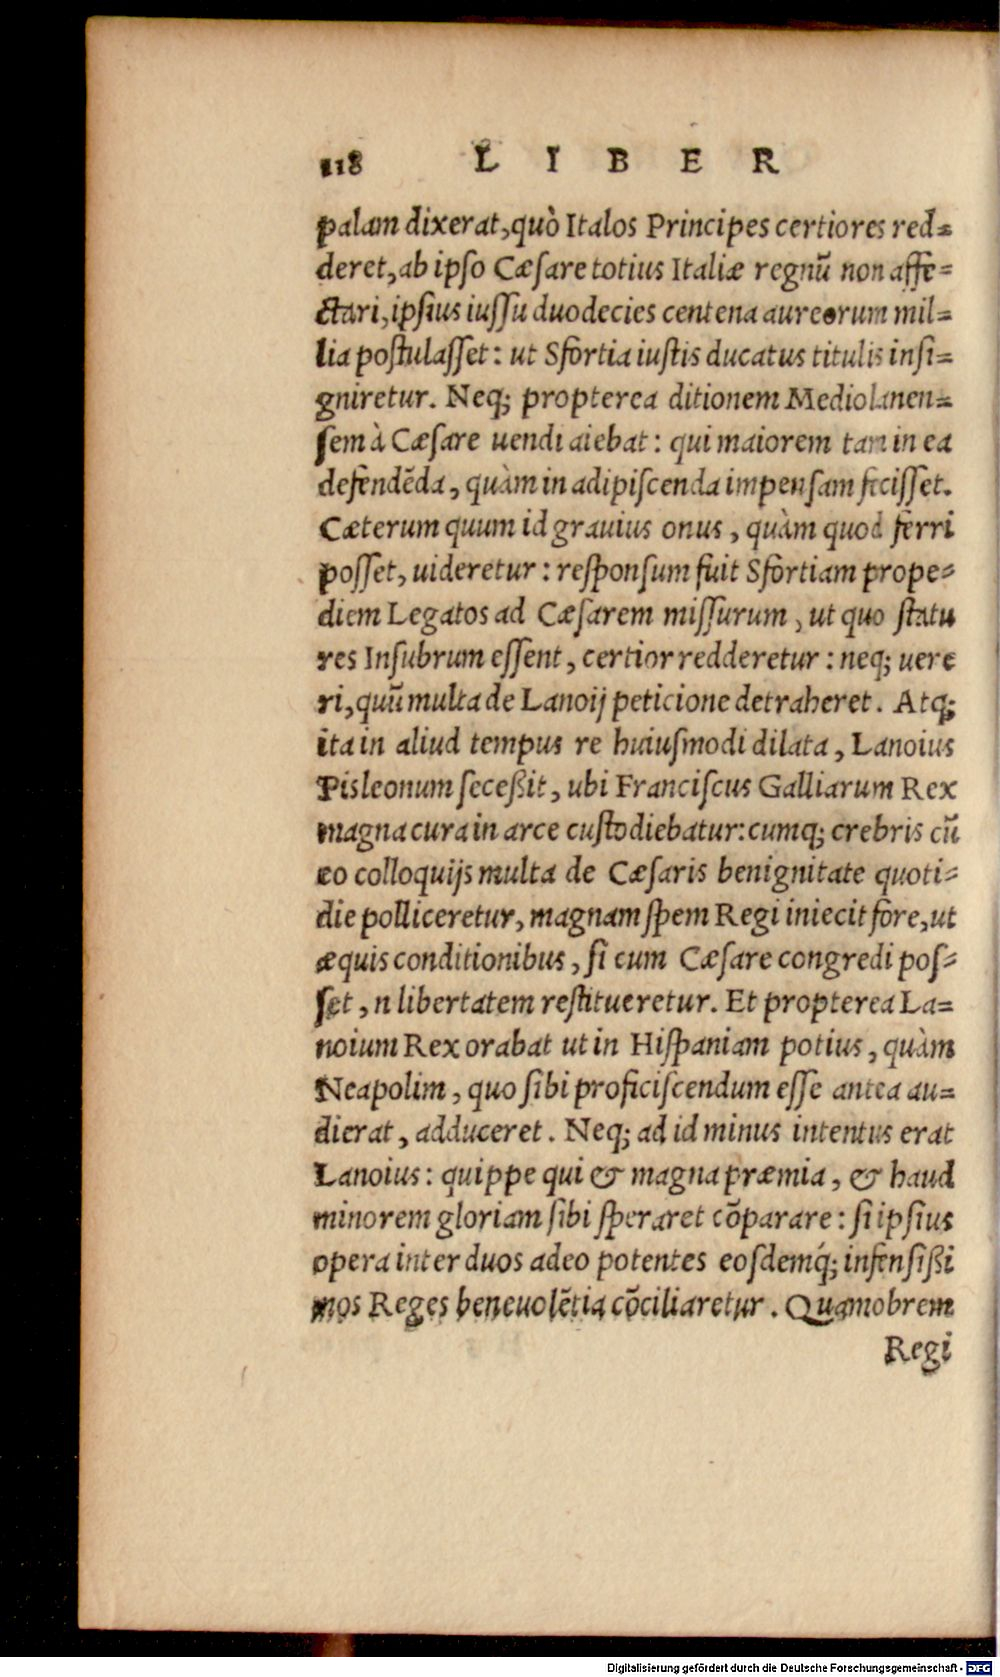 118 LIBER
palam dixerat, quò Italos Principes certiores red=
deret, ab ipso Cæsare totius Italiæ regnū non affe=
ctari, ipsius iussu duodecies centena aureorum mil=
lia postulasset: ut Sfortia iustis ducatus titulis insi=
gniretur. Neq; propterea ditionem Mediolanen=
sem à Cæsare uendi aiebat: qui maiorem tam in ea
defendēda, quàm in adipiscenda impensam fecisset.
Cæterum quum id grauius onus, quàm quod ferri
posset, uideretur: responsum fuit Sfortiam prope=
diem Legatos ad Cæsarem missurum, ut quo statu
res Insubrum essent, certior redderetur: neq; uere
ri, quū multa de Lanoij peticione detraheret. Atq;
ita in aliud tempus re huiusmodi dilata, Lanoius
Pisleonum seceßit, ubi Franciscus Galliarum Rex
magna cura in arce custodiebatur: cumq; crebris cū
eo colloquijs multa de Cæsaris benignitate quoti=
die polliceretur, magnam spem Regi iniecit fore, ut
æquis conditionibus, si cum Cæsare congredi pos=
set, n libertatem restitueretur. Et propterea La=
noium Rex orabat ut in Hispaniam potius, quàm
Neapolim, quo sibi proficiscendum esse antea au=
dierat, adduceret. Neq; ad id minus intentus erat
Lanoius: quippe qui & magna præmia, & haud
minorem gloriam sibi speraret cōparare: si ipsius
opera inter duos adeo potentes eosdemq́; infensißi
mos Reges beneuolētia cōciliaretur. Quamobrem
Regi
Digitalisierung gefördert durch die Deutsche Forschungsgemeinschaft - DFG